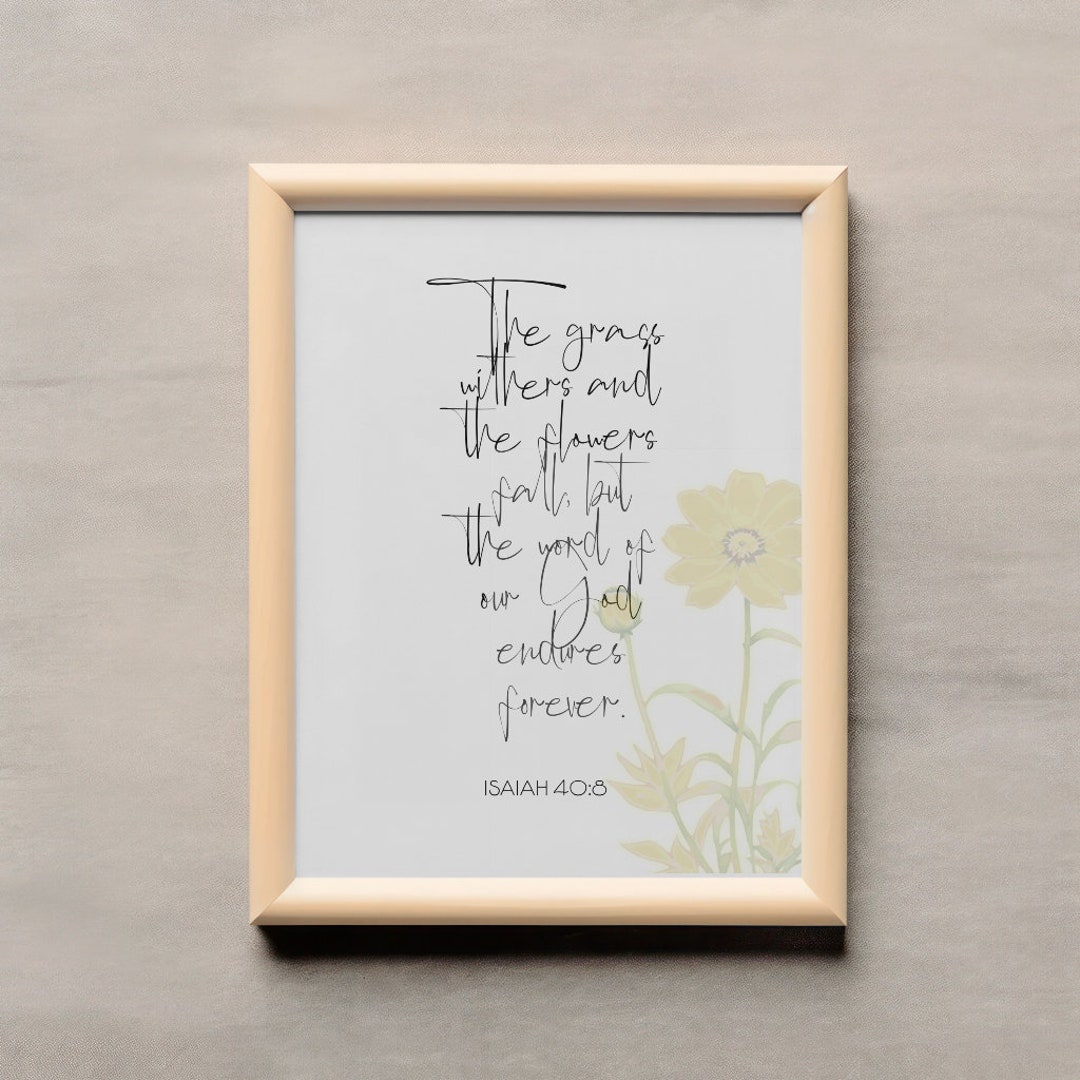 The grass
withers and
the flowers
fall, but
the word of
our God
endures
forever.
ISAIAH 40:8